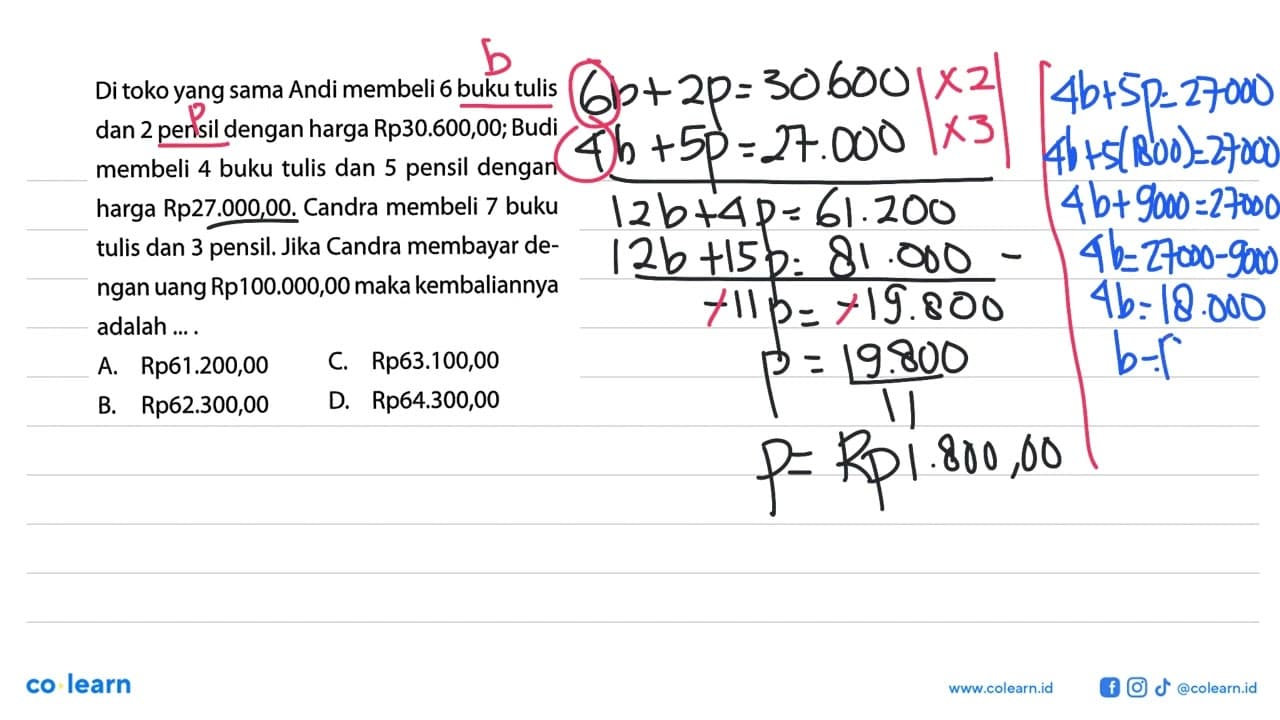 b
Di toko yang sama Andi membeli 6 buku tulis
p
dan 2 pensil dengan harga Rp30.600,00; Budi
membeli 4 buku tulis dan 5 pensil dengan
harga Rp27.000,00. Candra membeli 7 buku
tulis dan 3 pensil. Jika Candra membayar de-
ngan uang Rp100.000,00 maka kembaliannya
adalah ... .
A. Rp61.200,00 C. Rp63.100,00
B. Rp62.300,00 D. Rp64.300,00
6b+2p=30.600 |×2|
4b+5p=27.000 |×3|
12b+4p=61.200
12b+15p=81.000 -
-11p=-19.800
p=19.800
11
p=Rp1.800,00
4b+5p=27000
4b+5(1800)=27000
4b+9000=27000
4b=27000-9000
4b=18.000
b=
co learn
www.colearn.id
@colearn.id